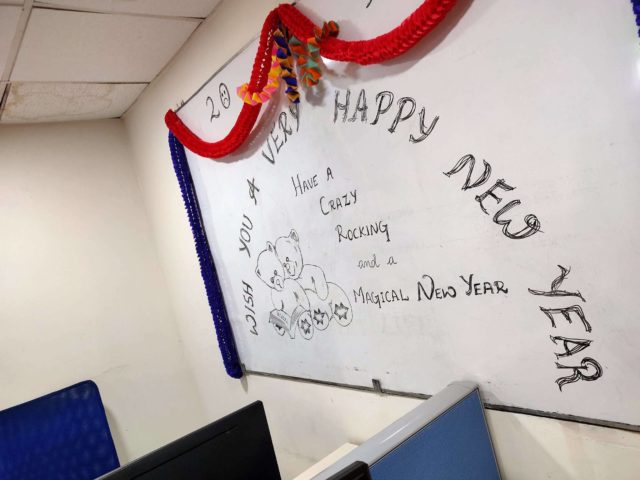 2
WISH YOU A VERY HAPPY NEW YEAR
HAVE A
CRAZY
ROCKING
and a
MAGICAL NEW YEAR